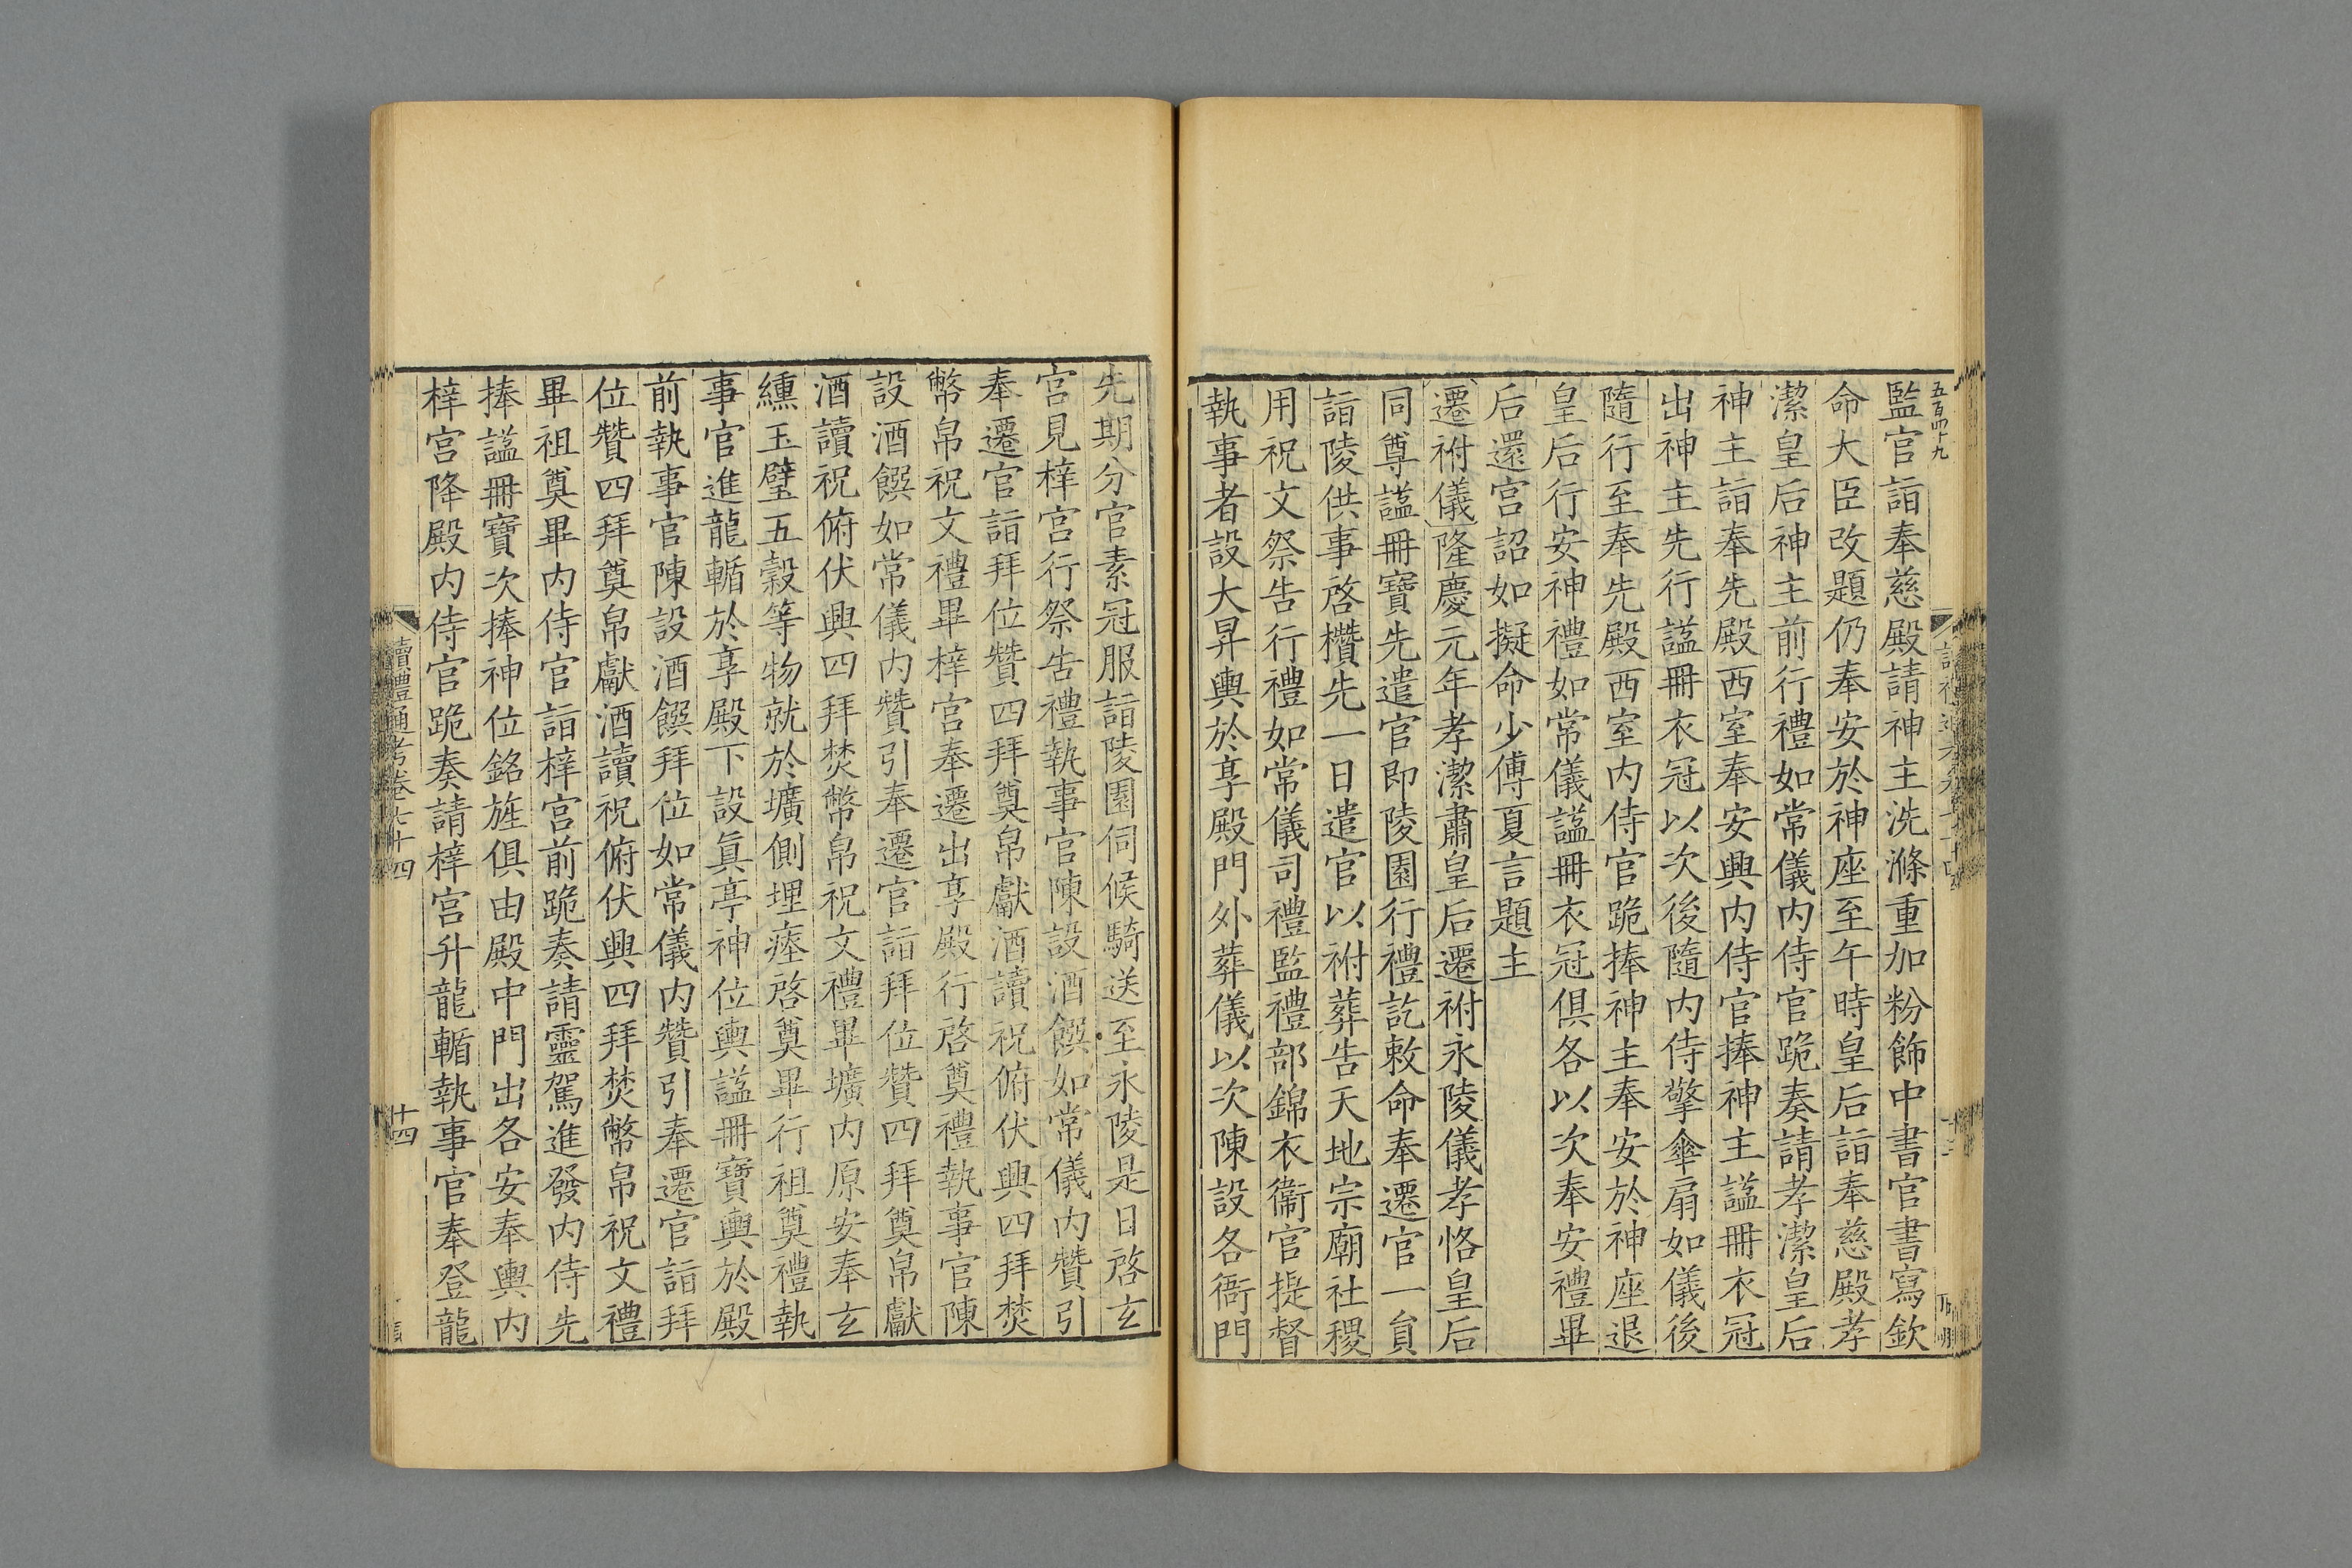 五百四十九
監官詣奉慈殿請神主洗滌重加粉飾中書官書寫欽
命大臣改題仍奉安於神座至午時皇后詣奉慈殿孝
潔皇后神主前行禮如常儀内侍官跪奏請孝潔皇后
神主詣奉先殿西室奉安興内侍官捧神主謚冊衣冠
出神主先行謚冊衣冠以次後隨内侍擎傘扇如儀後
隨行至奉先殿西室内侍官跪捧神主奉安於神座退
皇后行安神禮如常儀謚冊衣冠俱各以次奉安禮畢
后還宮詔如擬命少傅夏言題主
遷祔儀隆慶元年孝潔肅皇后遷祔永陵儀孝恪皇后
同尊謚冊寶先遣官即陵園行禮訖敕命奉遷官一員
詣陵供事啓欑先一日遣官以祔葬告天地宗廟社稷
用祝文祭告行禮如常儀司禮監禮部錦衣衞官提督
執事者設大昇輿於享殿門外葬儀以次陳設各衙門
先期分官素冠服詣陵園伺候騎送至永陵是日啓玄
宮見梓宮行祭告禮執事官陳設酒饌如常儀内贊引
奉遷官詣拜位贊四拜奠帛獻酒讀祝俯伏興四拜焚
幣帛祝文禮畢梓宮奉遷出享殿行啓奠禮執事官陳
設酒饌如常儀内贊引奉遷官詣拜位贊四拜奠帛獻
酒讀祝俯伏興四拜焚幣帛祝文禮畢壙内原安奉玄
纁玉璧五穀等物就於壙側埋瘞啓奠畢行祖奠禮執
事官進龍輴於享殿下設真亭神位輿謚冊寶輿於殿
前執事官陳設酒饌拜位如常儀内贊引奉遷官詣拜
位贊四拜奠帛獻酒讀祝俯伏興四拜焚幣帛祝文禮
畢祖奠畢内侍官詣梓宮前跪奏請靈駕進發内侍先
捧謚冊寶次捧神位銘旌俱由殿中門出各安奉輿内
梓宮降殿内侍官跪奏請梓宮升龍輴執事官奉登龍
讀禮通考卷七十四
十四